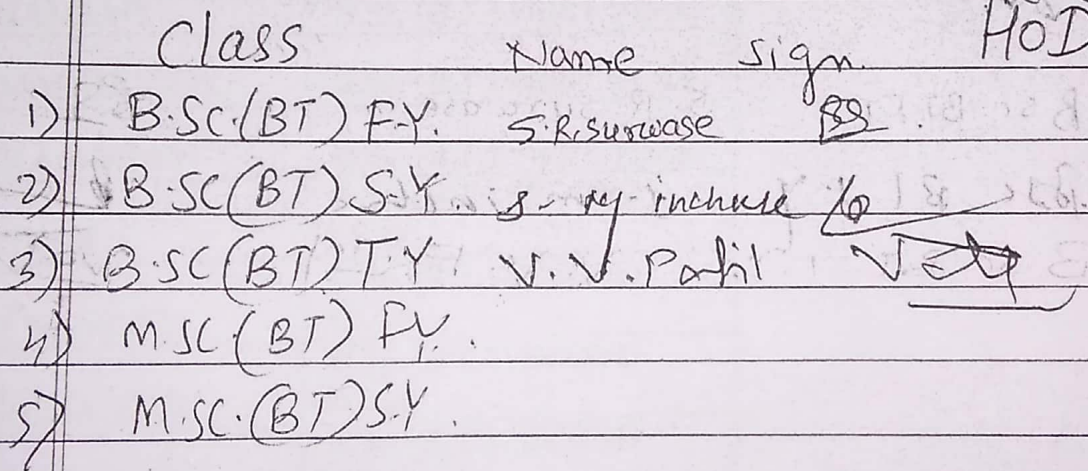 Class Name Sign HOD
1) B.SC.(BT) F.Y. S.R.Surwase
2) B.SC(BT) S.Y.
3) B.SC(BT) T.Y V.V.Patil
4) M.SC(BT) F.Y.
5) M.SC.(BT) S.Y.